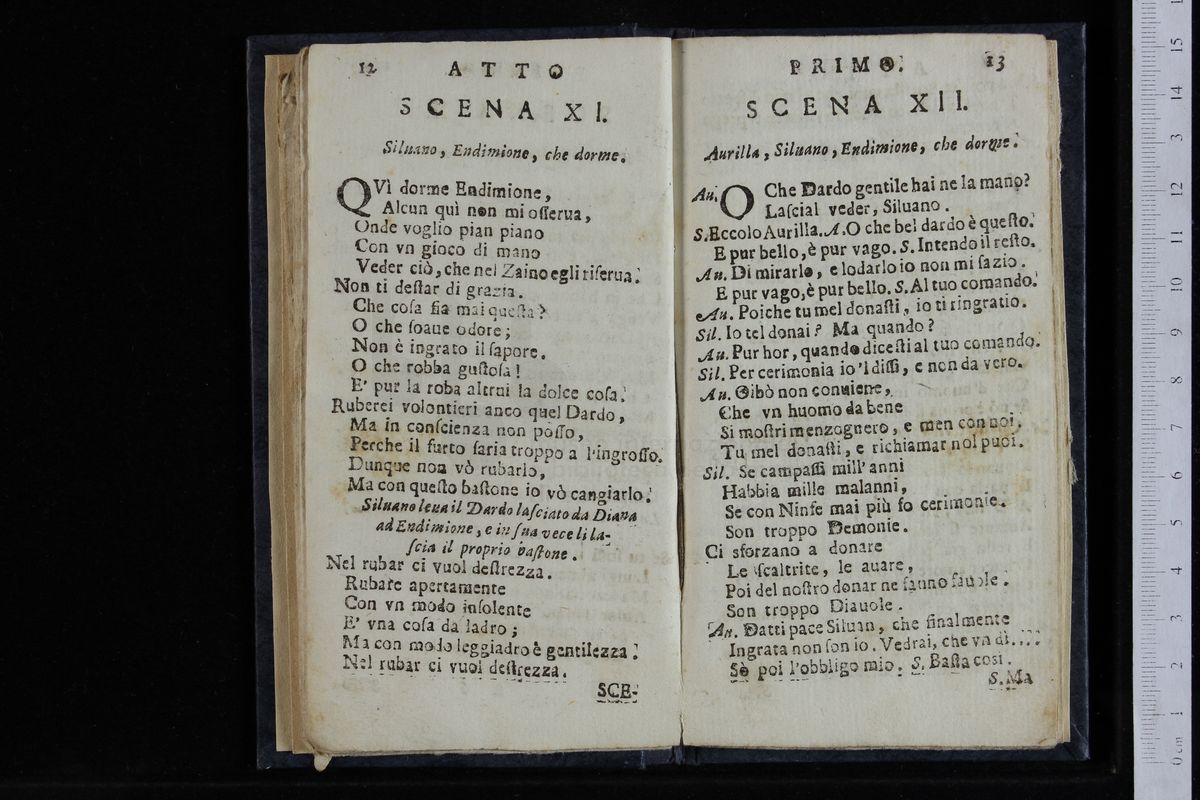 12 ATTO
SCENA XI.
Siluano, Endimione, che dorme.
QVì dorme Endimione,
Alcun quì non mi osserua,
Onde voglio pian piano
Con vn gioco di mano
Veder ciò, che nel Zaino egli riserua.
Non ti destar di grazia.
Che cosa fia mai questa?
O che soaue odore;
Non è ingrato il sapore.
O che robba gustosa!
E' pur la roba altrui la dolce cosa.
Ruberei volontieri anco quel Dardo,
Ma in conscienza non posso,
Perche il furto saria troppo a l'ingrosso.
Dunque non vò rubarlo,
Ma con questo bastone io vò cangiarlo.
Siluano leua il Dardo lasciato da Diana
ad Endimione, e in sua vece li la-
scia il proprio bastone.
Nel rubar ci vuol destrezza.
Rubare apertamente
Con vn modo insolente
E' vna cosa da ladro;
Ma con modo leggiadro è gentilezza.
Nel rubar ci vuol destrezza.
SCE-
PRIMO. 13
SCENA XII.
Aurilla, Siluano, Endimione, che dorme.
Au. O Che Dardo gentile hai ne la mano?
Lascial veder, Siluano.
S. Eccolo Aurilla. A. O che bel dardo è questo.
E pur bello, è pur vago. S. Intendo il resto.
Au. Di mirarlo, e lodarlo io non mi sazio.
E pur vago, è pur bello. S. Al tuo comando.
Au. Poiche tu mel donasti, io ti ringratio.
Sil. Io tel donai? Ma quando?
Au. Pur hor, quando dicesti al tuo comando.
Sil. Per cerimonia io 'l dissi, e non da vero.
Au. Oibò non conuiene,
Che vn huomo da bene
Si mostri menzognero, e men con noi.
Tu mel donasti, e richiamar nol puoi.
Sil. Se campassi mill' anni
Habbia mille malanni,
Se con Ninfe mai più fo cerimonie.
Son troppo Demonie.
Ci sforzano a donare
Le scaltrite, le auare,
Poi del nostro donar ne fanno fauole.
Son troppo Diauole.
Au. Datti pace Siluan, che finalmente
Ingrata non son io. Vedrai, che vn dì....
Sò poi l'obbligo mio. S. Basta così.
S. Ma